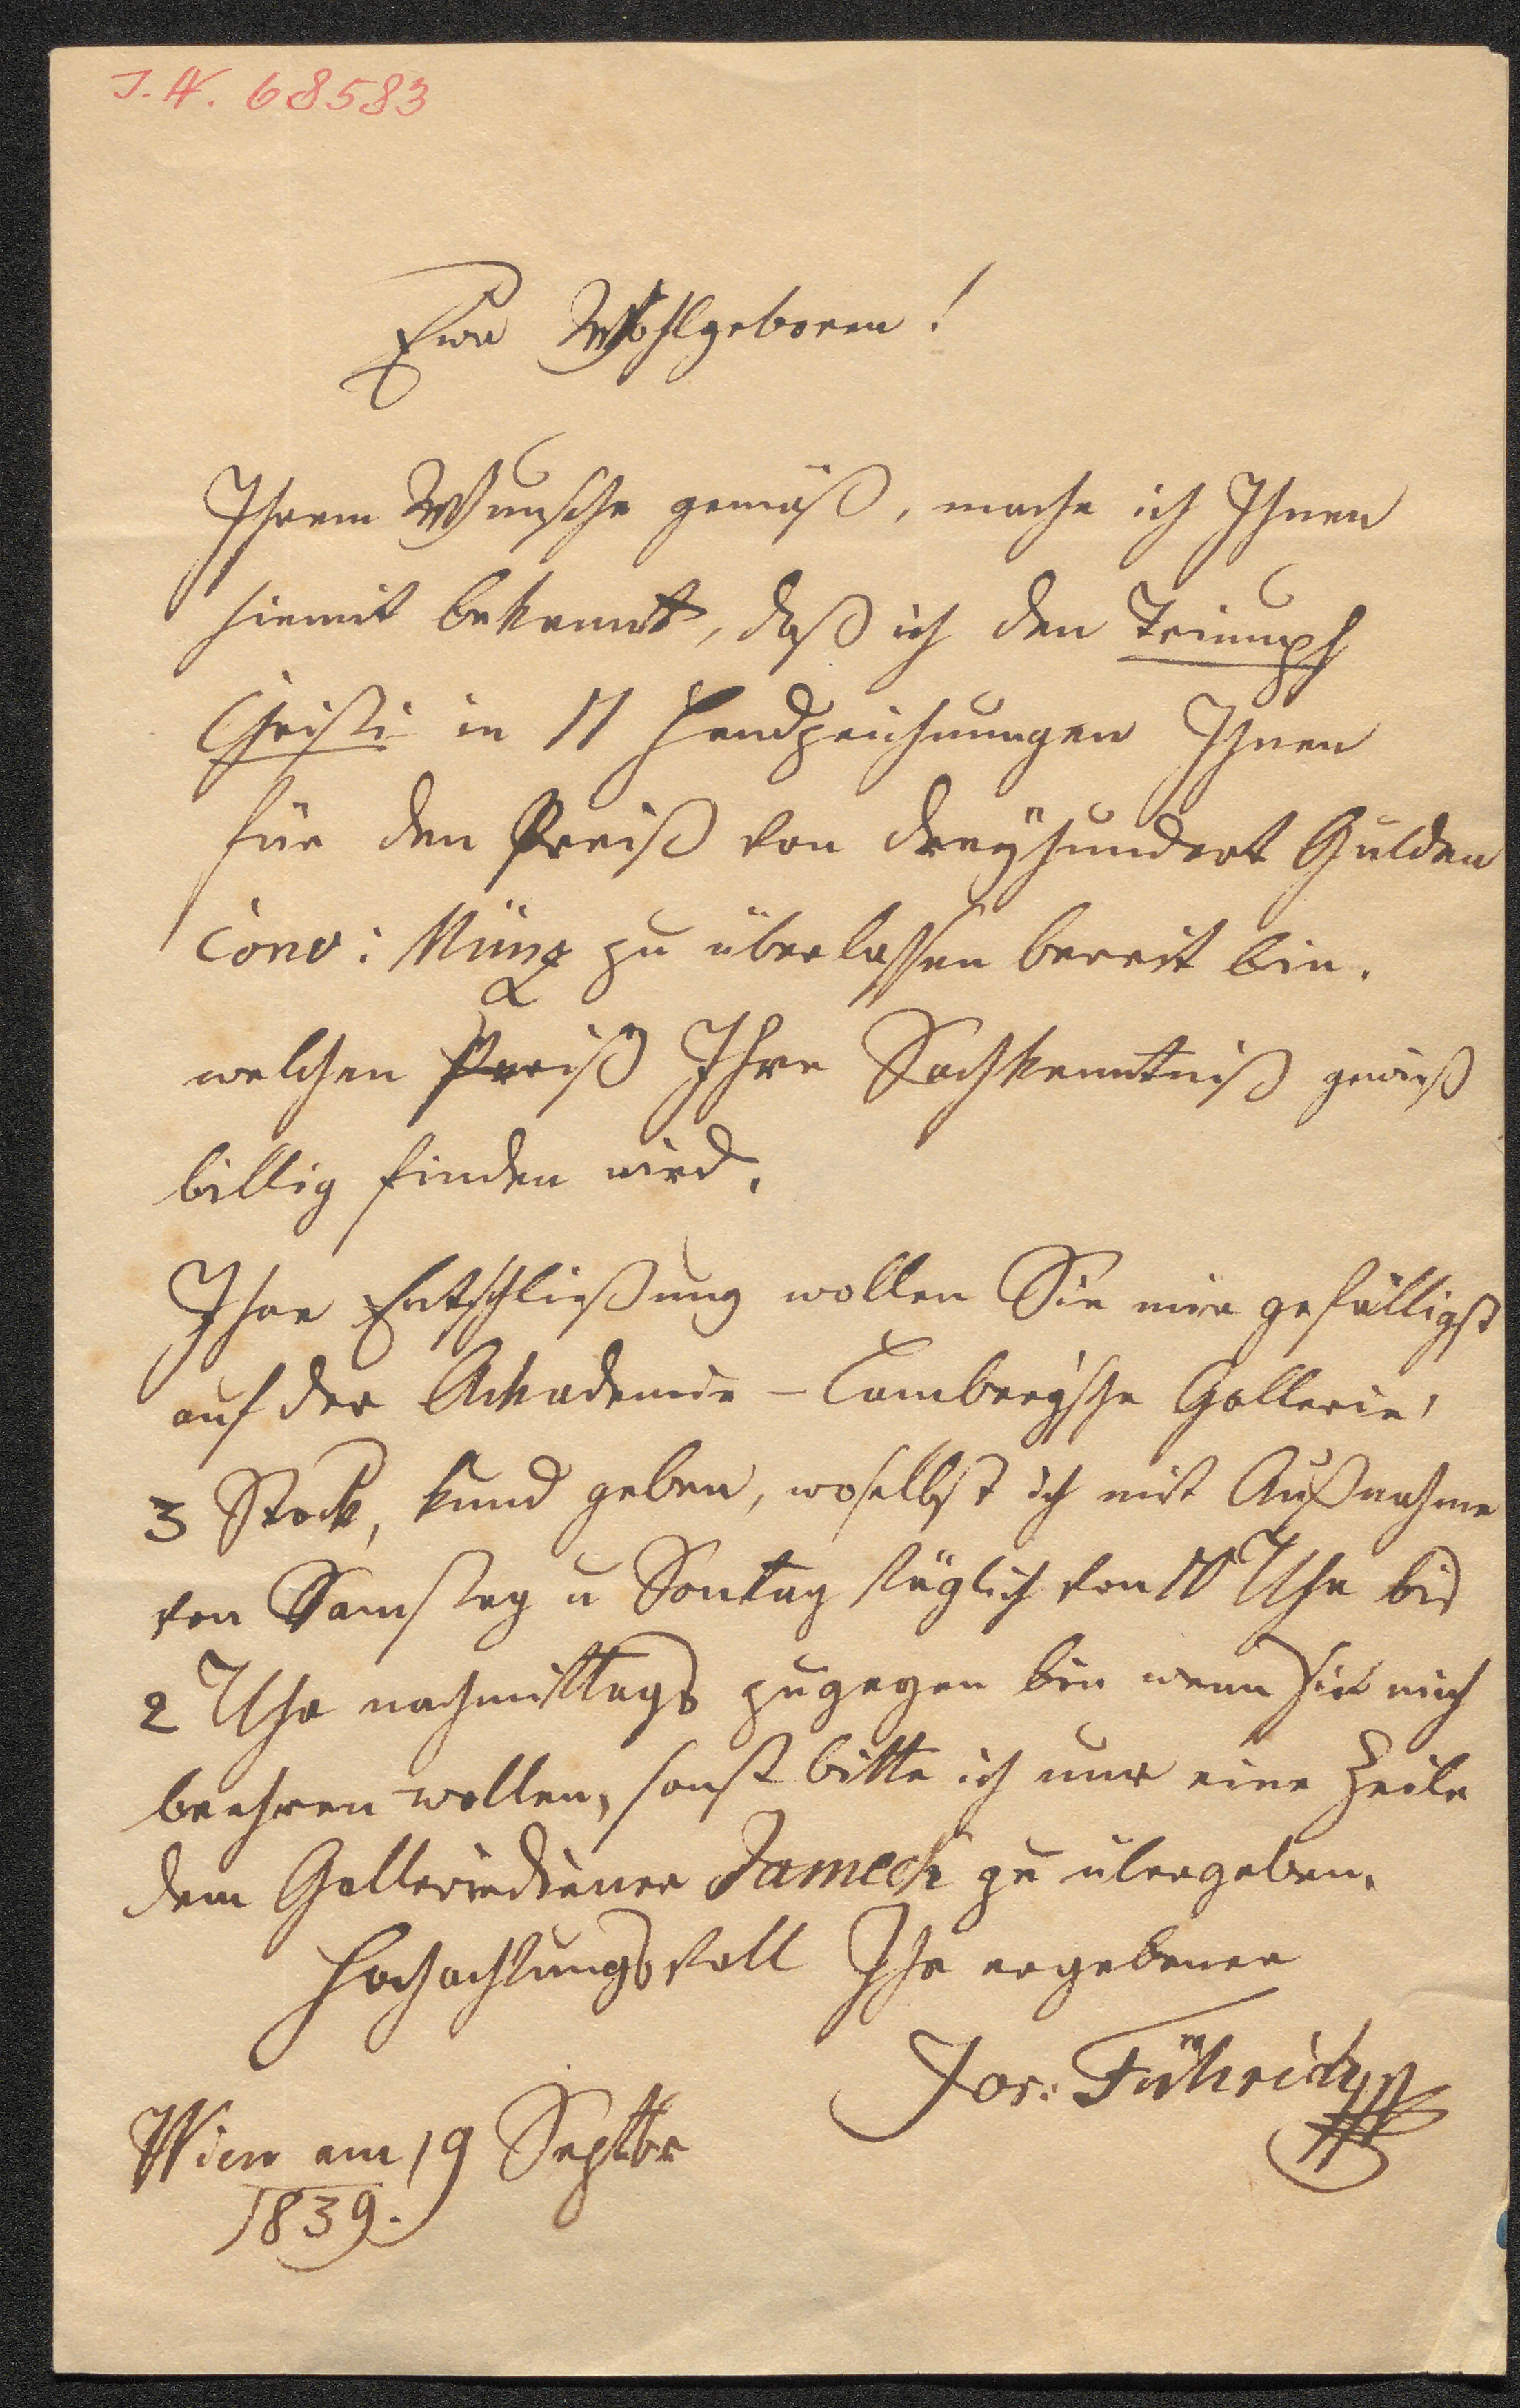 J.N. 68583
Eure Wohlgeboren!
Ihrem Wunsche gemäß, mache ich Ihnen
hiemit bekannt, daß ich den Triumph
Christi in 11 Handzeichnungen Ihnen
für den Preiß von dreÿhundert Gulden
Conv: Münz zu überlassen bereit bin.
welchen Preiß Ihre Sachkenntniß gewiß
billig finden wird.
Ihre Entschließung wollen Sie mir gefälligst
auf der Ackademie – Lambergsche Gallerie,
3 Stock, kund geben, woselbst ich mit Außnahme
von Samstag u Sontag täglich von 10 Uhr bis
2 Uhr nachmittags zugegen bin wenn Sie mich
beehren wollen, sonst bitte ich nur eine Zeile
dem Galleriediener Jameck zu übergeben.
Hochachtungsvoll Ihr ergebener
Jos: Führich
Wien am 19 Septbr
1839.